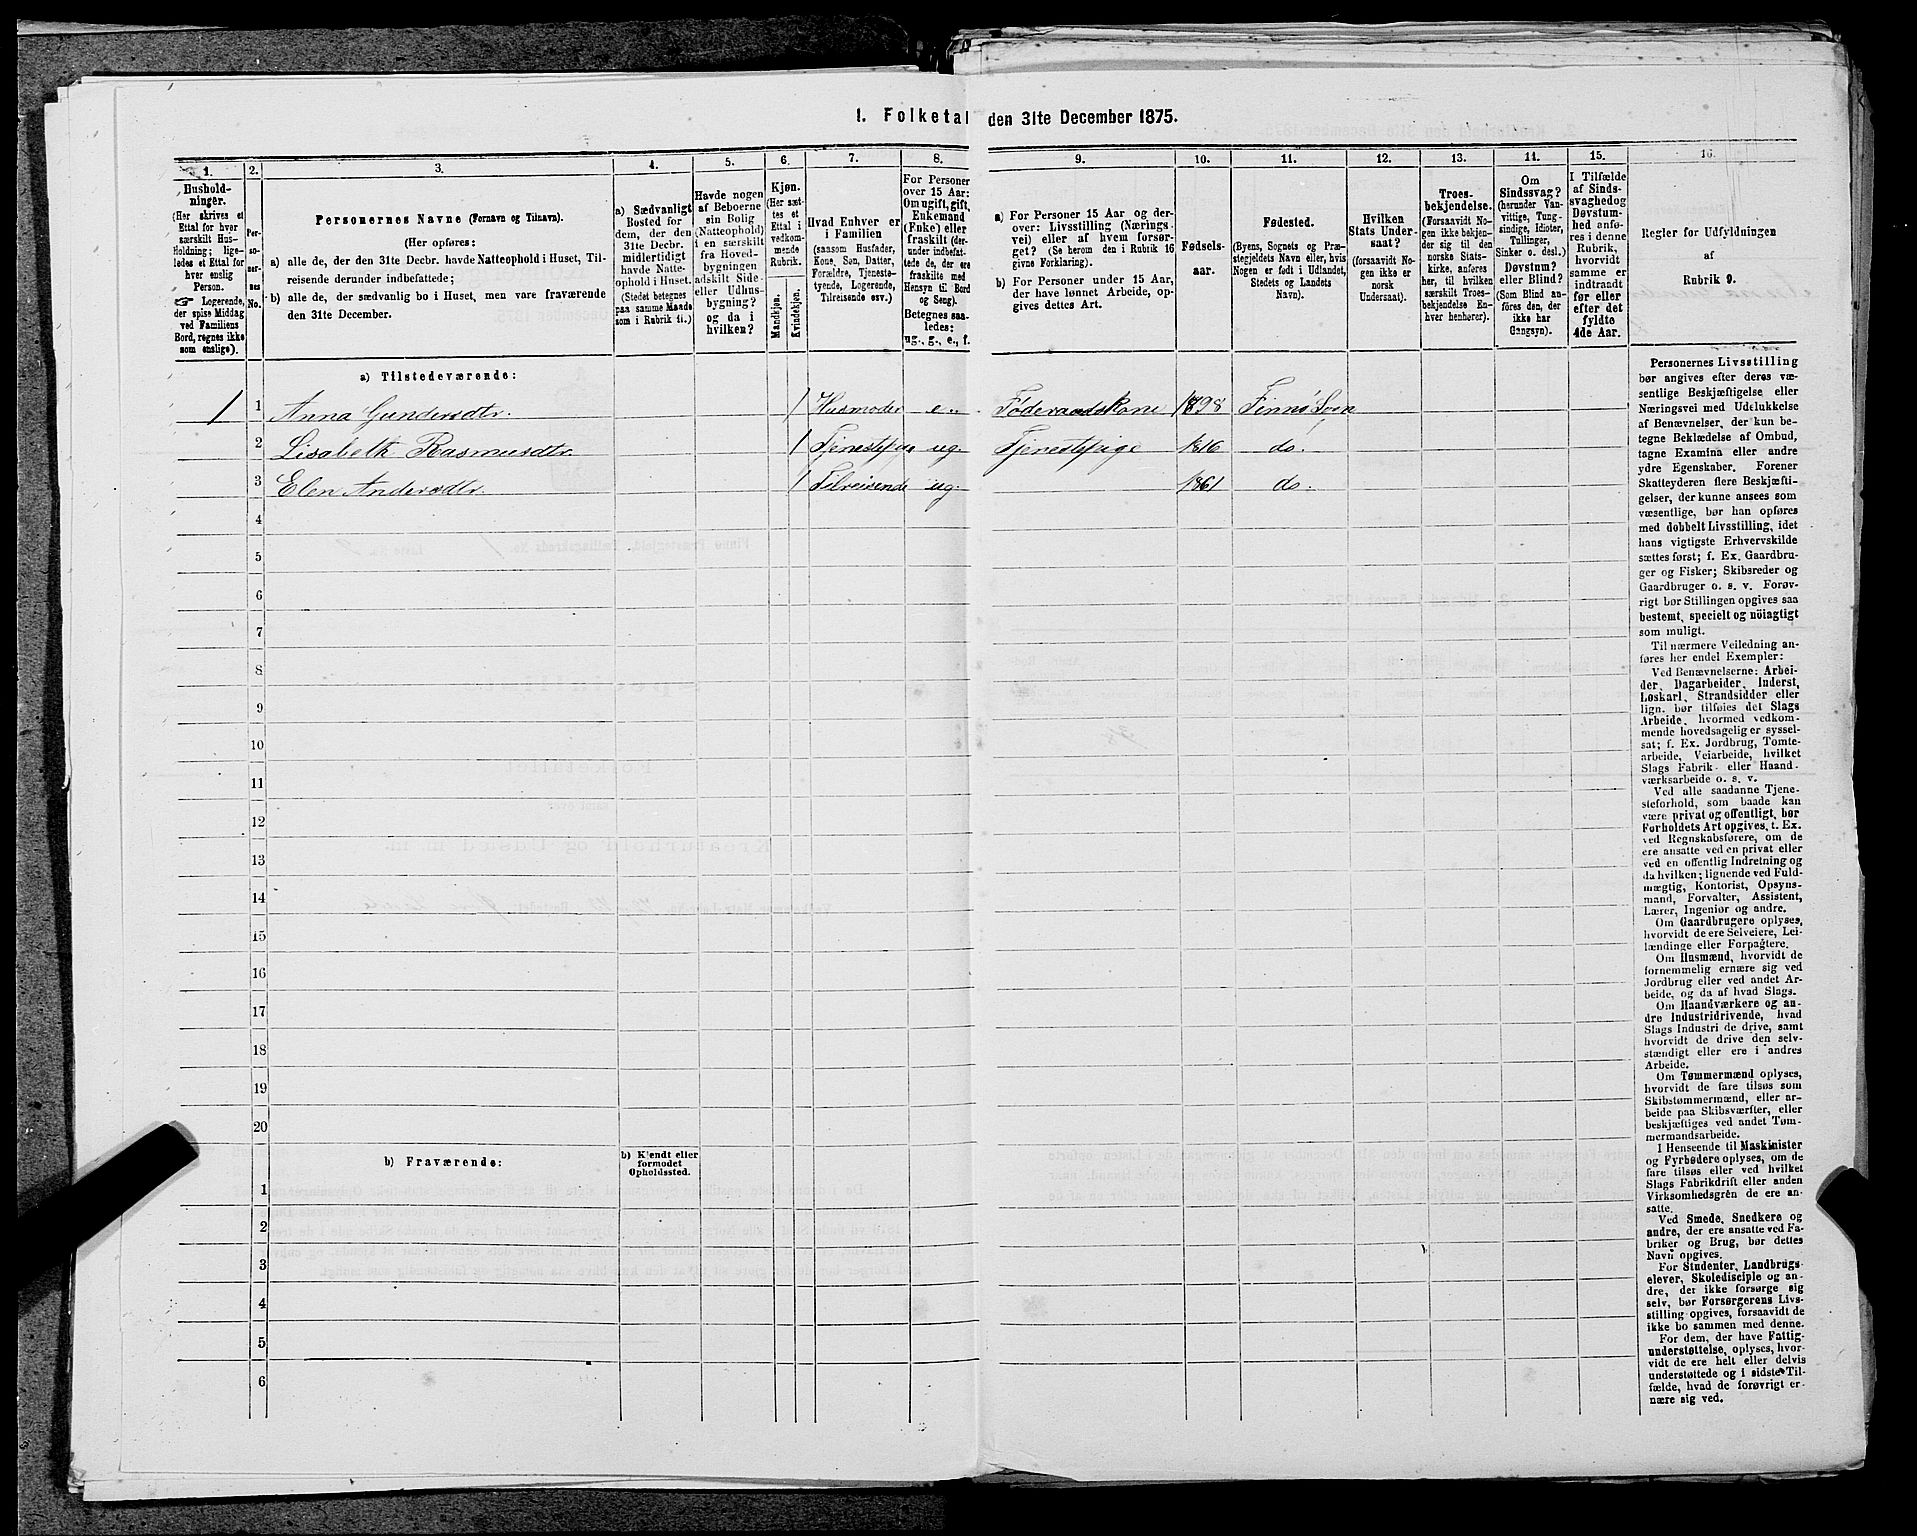 1. Folketal den 31te December 1875.
1.
Hushold-
ninger.
(Her skrives et
Ettal for hver
særskilt Hus-
holdning; lige-
ledes et Ettal for
hver enslig
Person.
☞ Logerende,
der spise Middag
ved Familiens
Bord, regnes ikke
som enslige).
2.
Per-
so-
ner-
nes
No.
3.
Personernes Navne (Fornavn og Tilnavn).
(Her opføres:
a) alle de, der den 31te Decbr. havde Natteophold i Huset, Til-
reisende derunder indbefattede;
b) alle de, der sædvanlig bo i Huset, men vare fraværende
den 31te December.
4.
a) Sædvanligt
Bosted for
dem, der den
31te Decbr.
midlertidigt
havde Natte-
ophold i Huset.
(Stedet betegnes
paa samme Maade
som i Rubrik 11.)
5.
Havde nogen
af Beboerne
sin Bolig
(Natteophold)
i en særskilt
fra Hoved-
bygningen
adskilt Side-
eller Udhus-
bygning?
og da i
hvilken?
6.
Kjøn.
(Her sæt-
tes et
Ettal i
vedkom-
mende
Rubrik.
Mandkjøn.
Kvindekjøn.
7.
Hvad Enhver er
i Familien
(saasom Husfader,
Kone, Søn, Datter,
Forældre, Tjeneste-
tyende, Logerende,
Tilreisende osv.)
8.
For Personer
over 15 Aar:
Om ugift, gift,
Enkemand
(Enke) eller
fraskilt (der-
under indbefat-
tede de, der ere
fraskilte med
Hensyn til Bord
og Seng).
Betegnes saa-
ledes:
ug., g., e., f.
9.
a) For Personer 15 Aar og der-
over: Livsstilling (Nærings-
vei) eller af hvem forsør-
get? (Se herom den i Rubrik 16
givne Forklaring).
b) For Personer under 15 Aar,
der have lønnet Arbeide, op-
gives dettes Art.
10.
Fødsels-
aar.
11.
Fødested.
(Byens, Sognets og Præ-
stegjeldets Navn eller, hvis
Nogen er født i Udlandet,
Stedets og Landets
Navn).
12.
Hvilken
Stats Under-
saat?
(forsaavidt No-
gen ikke er
norsk
Undersaat).
13.
Troes-
bekjendelse.
(Forsaavidt No-
gen ikke bekjen-
der sig til den
norske Stats-
kirke, anføres
her, til hvilken
særskilt Troes-
bekjendelse En-
hver henhører).
14.
Om
Sindssvag?
(herunder Van-
vittige, Tung-
sindige, Idioter,
Tullinger,
Sinker o. desl.)
Døvstum?
eller Blind?
(Som Blind an-
føres den, der
ikke har
Gangsyn).
15.
I Tilfælde
af Sinds-
svaghed og
Døvstum-
hed anfø-
res i denne
Rubrik,
hvorvidt
samme er
indtraadt
før eller
efter det
fyldte
4de Aar.
16.
Regler for Udfyldningen
af
Rubrik 9.
a) Tilstedeværende:
1 1 Anna Gundersdtr. 1 Husmoder e. Føderaadskone 1898 Finnø Sogn
2 Lisabeth Rasmusdtr. 1 Tjenestepige ug. Tjenestepige 1816 do.
3 Elen Andersdtr. 1 Tilreisende ug. 1861 do.
4
5
6
7
8
9
10
11
12
13
14
15
16
17
18
19
20
b) Fraværende:
b) Kjendt eller
formodet
Opholdssted.
1
2
3
4
5
6
Personernes Livsstilling
bør angives efter deres væ-
sentlige Beskjæftigelse eller
Næringsvei med Udelukkelse
af Benævnelser, der kun be-
tegne Beklædelse af Ombud,
tagne Examina eller andre
ydre Egenskaber. Forener
Skatteyderen flere Beskjæfti-
gelser, der kunne ansees som
væsentlige, bør han opføres
med dobbelt Livsstilling, idet
hans vigtigste Erhvervskilde
sættes først; f. Ex. Gaardbru-
ger og Fisker; Skibsreder og
Gaardbruger o. s. v. Forøv-
rigt bør Stillingen opgives saa
bestemt, specielt og nöiagtigt
som muligt.
Til nærmere Veiledning an-
føres her endel Exempler:
Ved Benævnelserne: Arbei-
der, Dagarbeider, Inderst,
Løskarl, Strandsidder eller
lign. bør tilføies det Slags
Arbeide, hvormed vedkom-
mende hovedsagelig er syssel-
sat; f. Ex. Jordbrug, Tomte-
arbeide, Veiarbeide, hvilket
Slags Fabrik- eller Haand-
værksarbeide o. s. v.
Ved alle saadanne Tjene-
steforhold, som baade kan
være privat og offentligt, bør
Forholdets Art opgives, t. Ex.
ved Regnskabsførere, om de
ere ansatte ved en privat eller
ved en offentlig Indretning og
da hvilken; lignende ved Fuld-
mægtig, Kontorist, Opsyns-
mand, Forvalter, Assistent,
Lærer, Ingeniør og andre.
Om Gaardbrugere oplyses,
hvorvidt de ere Selveiere, Lei-
lændinge eller Forpagtere.
Om Husmænd, hvorvidt de
fornemmelig ernære sig ved
Jordbrug eller ved andet Ar-
beide, og da af hvad Slags.
Om Haandværkere og an-
dre Industridrivende, hvad
Slags Industri de drive, samt
hvorvidt de drive den selv-
stændigt eller ere i andres
Arbeide.
Om Tømmermænd oplyses,
hvorvidt de fare tilsøs som
Skibstømmermænd, eller ar-
beide paa Skibsværfter, eller
beskjæftiges ved andet Tøm-
mermandsarbeide.
I Henseende til Maskinister
og Fyrbødere oplyses, om de
fare tilsøs eller ved hvilket
Slags Fabrikdrift eller anden
Virksomhedsgrén de ere an-
satte.
Ved Smede, Snedkere og
andre, der ere ansatte ved Fa-
briker og Brug, bør dettes
Navn opgives.
For Studenter, Landbrugs-
elever, Skoledisciple og an-
dre, der ikke forsørge sig
selv, bør Forsørgerens Livs-
stilling opgives, forsaavidt de
ikke bo sammen med denne.
For dem, der have Fattig-
understøttelse, oplyses, hvor-
vidt de ere helt eller delvis
understøttede og i sidste Til-
fælde, hvad de forøvrigt er-
nære sig ved.